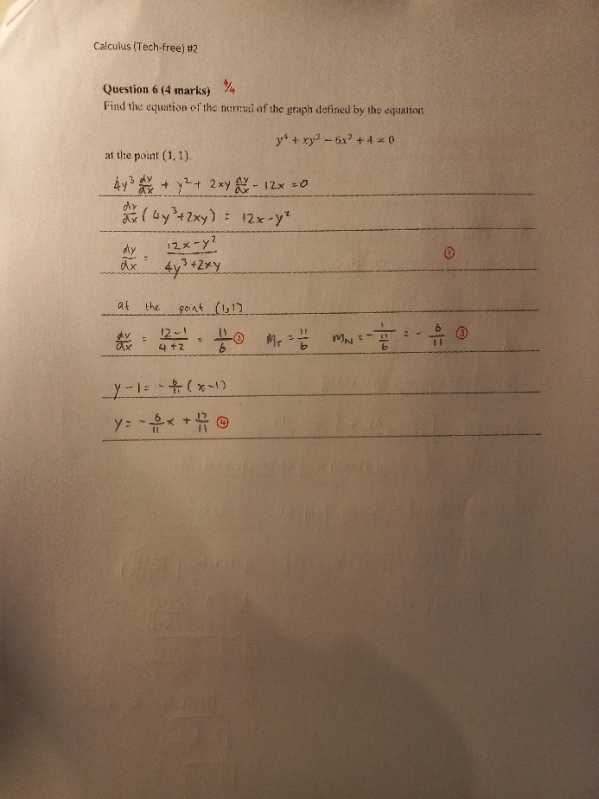 Calculus (Tech-free) #2
Question 6 (4 marks) 4/4
Find the equation of the normal of the graph defined by the equation
y⁴ + xy² − 6x² + 4 = 0
at the point (1, 1).
4y³ dy/dx + y² + 2xy dy/dx - 12x = 0
dy/dx (4y³+2xy) = 12x-y²
dy/dx = (12x-y²)/(4y³+2xy) ①
at the point (1,1)
dy/dx = (12-1)/(4+2) = 11/6 ② m_T = 11/6 m_N = -1/(11/6) = -6/11 ③
y-1 = -6/11 (x-1)
y = -6/11 x + 17/11 ④